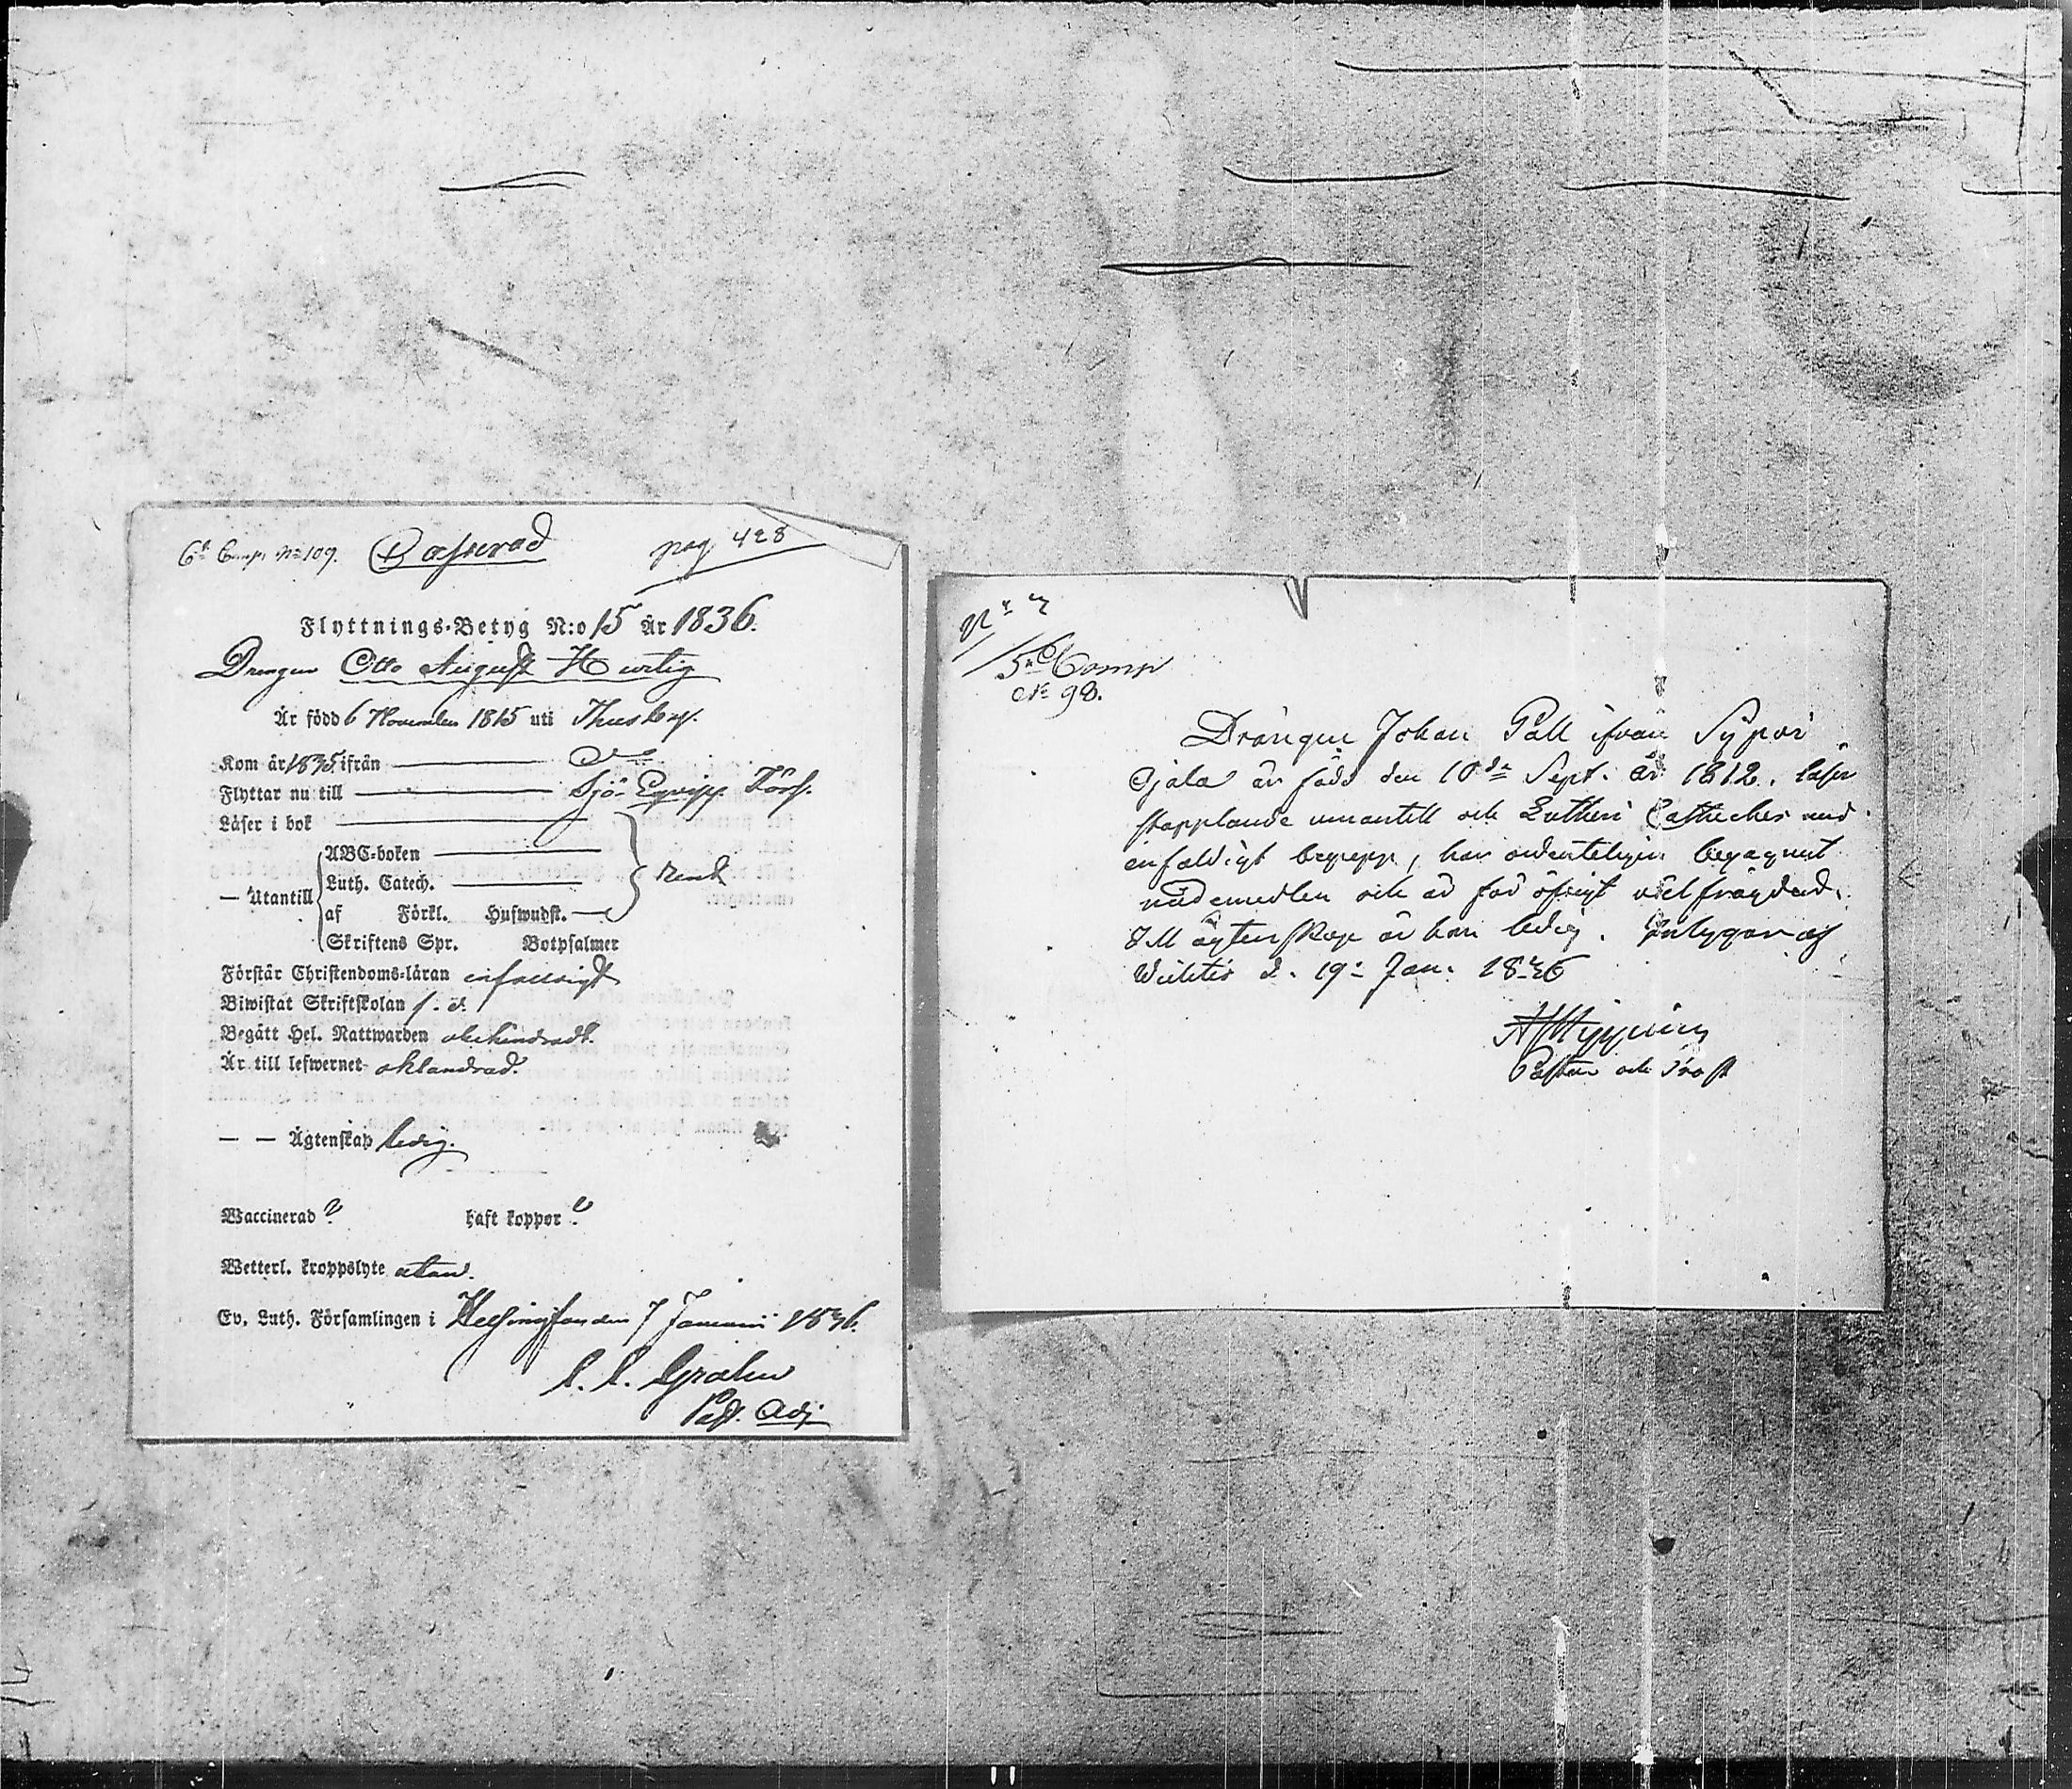 6te Comp. No 109. Casserad pag 428
Flyttnings-Betyg N:o 15 År 1836.
Drengen Otto August Hurtig
Är född 6 November 1815 uti Thusby.
Kom år 1835 ifrån
Flyttar nu till Sjö-Equipp. Förs.
Läser i bok
ABC-boken
— Utantill Luth. Catech. rent
af Förkl. Huswudst.
Skriftens Spr. Botpsalmer
Förstår Christendoms-läran enfaldigt
Biwistat Skriftskolan
Begått Hel. Nattwarden obehindradt.
Är till lefwernet oklandrad.
— — Ägtenskap ledig.
Waccinerad ? haft koppor ?
Wetterl. kroppslyte utan.
Ev. Luth. Församlingen i Helsingfors den 7 Januari 1836.
Past. Adj.
5te Comp
No 98.
Drängen Johan Påll ifrån
är född den 10de Sept. år 1812, läser
stapplande innantill och Lutheri Catheches med
enfaldigt begrepp, har ordenteligen begagnat
nådemedlen och är för öfrigt välfrägdad.
Till ägtenskap är han ledig. Intygar af
Wichtis d. 19de Jan. 1836
AJHipping
Pastor och Prost